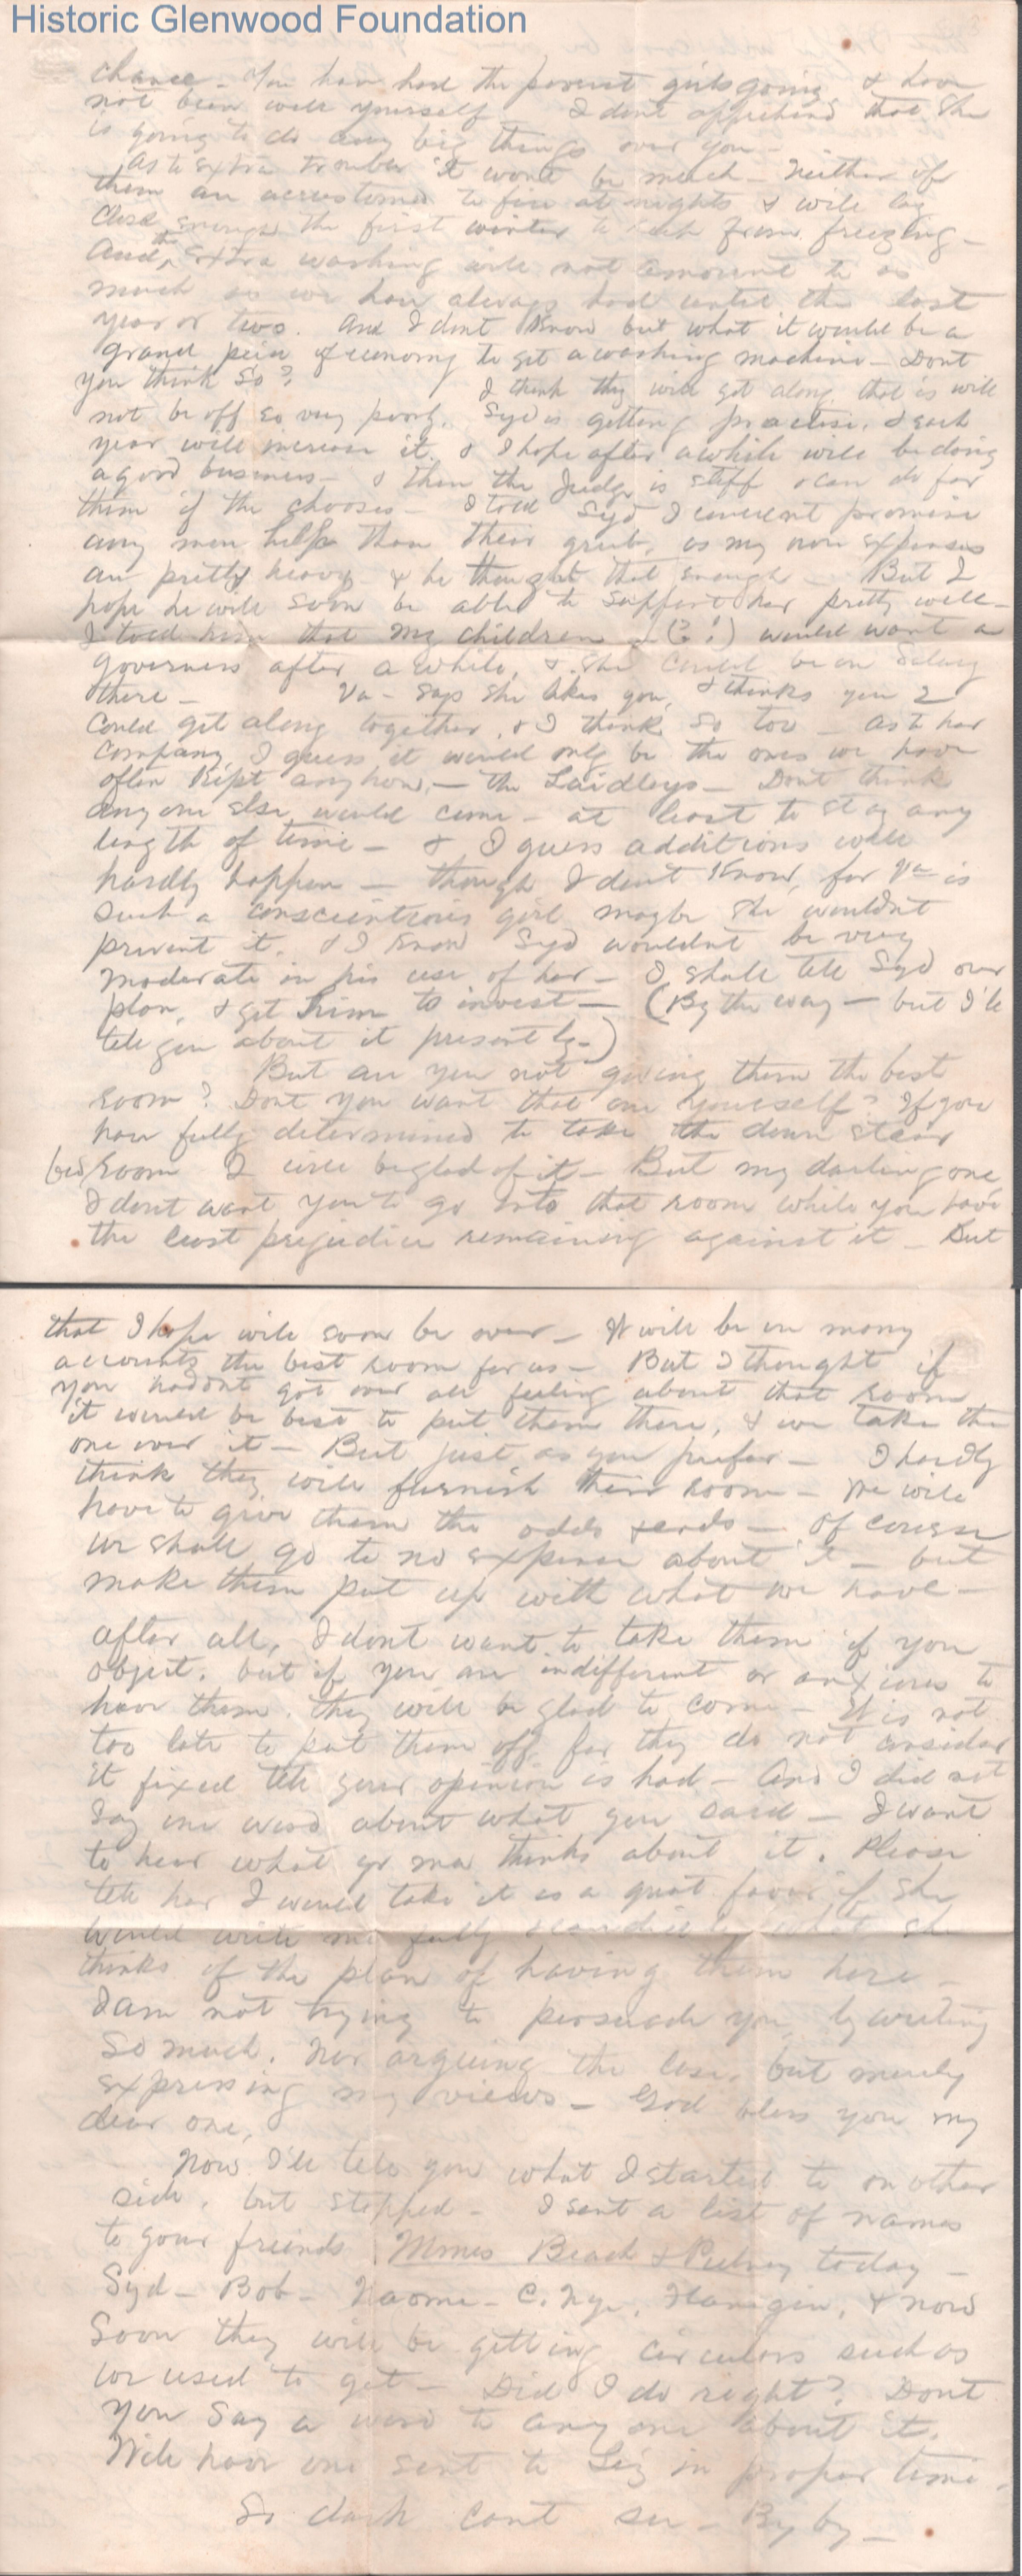 Historic Glenwood Foundation
chance - You have had the poorest girls going & have
not been well yourself I dont apprehend that she
is going to do any big things over you -
As to extra trouble it wont be much - Neither of
them are accustomed to fire at nights & will lay
close enough the first winter to keep from freezing -
And the extra washing will not amount to as
much as we have always had until the last
year or two. And I dont know but what it would be a
grand piece of economy to get a washing machine - Dont
you think so? I think they will get along, that is will
not be off so very poorly. Syd is getting practise, & each
year will increase it. & I hope after awhile will be doing
a good business - & then the Judge is stiff & can do for
them if he chooses - I told Syd I couldnt promise
any more help than their grub, as my own expenses
are pretty heavy - & he thought that enough - But I
hope he will soon be able to support her pretty well -
I told him that my children (?!) would want a
governess after a while, & she could be on salary
there - Va - says she likes you, & thinks you 2
could get along together, & I think so too - As to her
company, I guess it would only be the ones we have
often kept anyhow, - the Laidleys - Dont think
anyone else would come - at least to stay any
length of time - & I guess additions will
hardly happen - though I dont know, for Va is
such a conscientious girl maybe she wouldnt
prevent it. & I know Syd wouldnt be very
moderate in his use of her - I shall tell Syd our
plan, & get him to invest - (By the way - but I'll
tell you about it presently -)
But are you not giving them the best
room? Dont you want that one yourself? If you
have fully determined to take the down stair
bed room I will be glad of it - But my darling one
I dont want you to go into that room while you have
the least prejudice remaining against it - But
that I hope will soon be over - It will be on many
accounts the best room for us - But I thought if
you hadnt got over all feeling about that room
it would be best to put them there, & we take the
one over it - But just as you prefer - I hardly
think they will furnish their room - We will
have to give them the odds & ends - Of course
we shall go to no expense about it - but
make them put up with what we have -
After all, I dont want to take them if you
object. but if you are indifferent or anxious to
have them, they will be glad to come - It is not
too late to put them off, for they do not consider
it fixed till your opinion is had - And I did not
say one word about what you said - I want
to hear what yr ma thinks about it. Please
tell her I would take it as a great favor if she
would write me fully & candidly what she
thinks of the plan of having them here -
I am not trying to persuade you, by writing
so much. Nor arguing the case, but merely
expressing my views - God bless you my
dear one,
Now I'll tell you what I started to on other
side, but stopped - I sent a list of names
to your friends Mmes Beach & today -
Syd - Bob - Naomi - C. Nye, Flanigin, & now
soon they will be getting circulars such as
we used to get - Did I do right? Dont
you say a word to any one about it.
Will have one sent to Liz in proper time.
So dark cant see - By by -